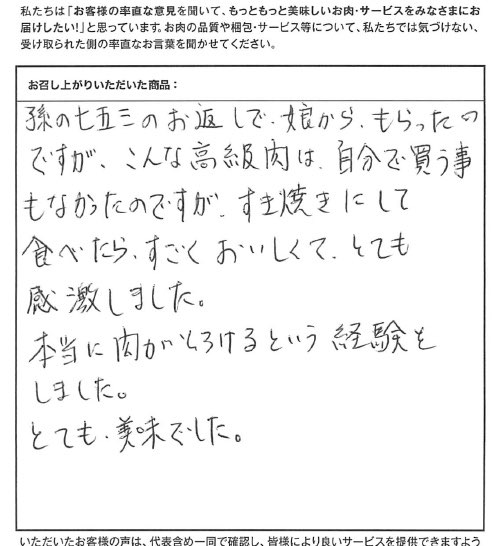 私たちは「お客様の率直な意見を聞いて、もっともっと美味しいお肉・サービスをみなさまにお
届けしたい!」と思っています。お肉の品質や梱包・サービス等について、私たちでは気づけない、
受け取られた側の率直なお言葉を聞かせてください。
お召し上がりいただいた商品：
孫の七五三のお返しで、娘から、もらったの
ですが、こんな高級肉は、自分で買う事
もなかったのですが、すき焼きにして
食べたら、すごくおいしくて、とても
感激しました。
本当に肉がとろけるという経験を
しました。
とても、美味でした。
いただいたお客様の声は、代表含め一同で確認し、皆様により良いサービスを提供できますよう